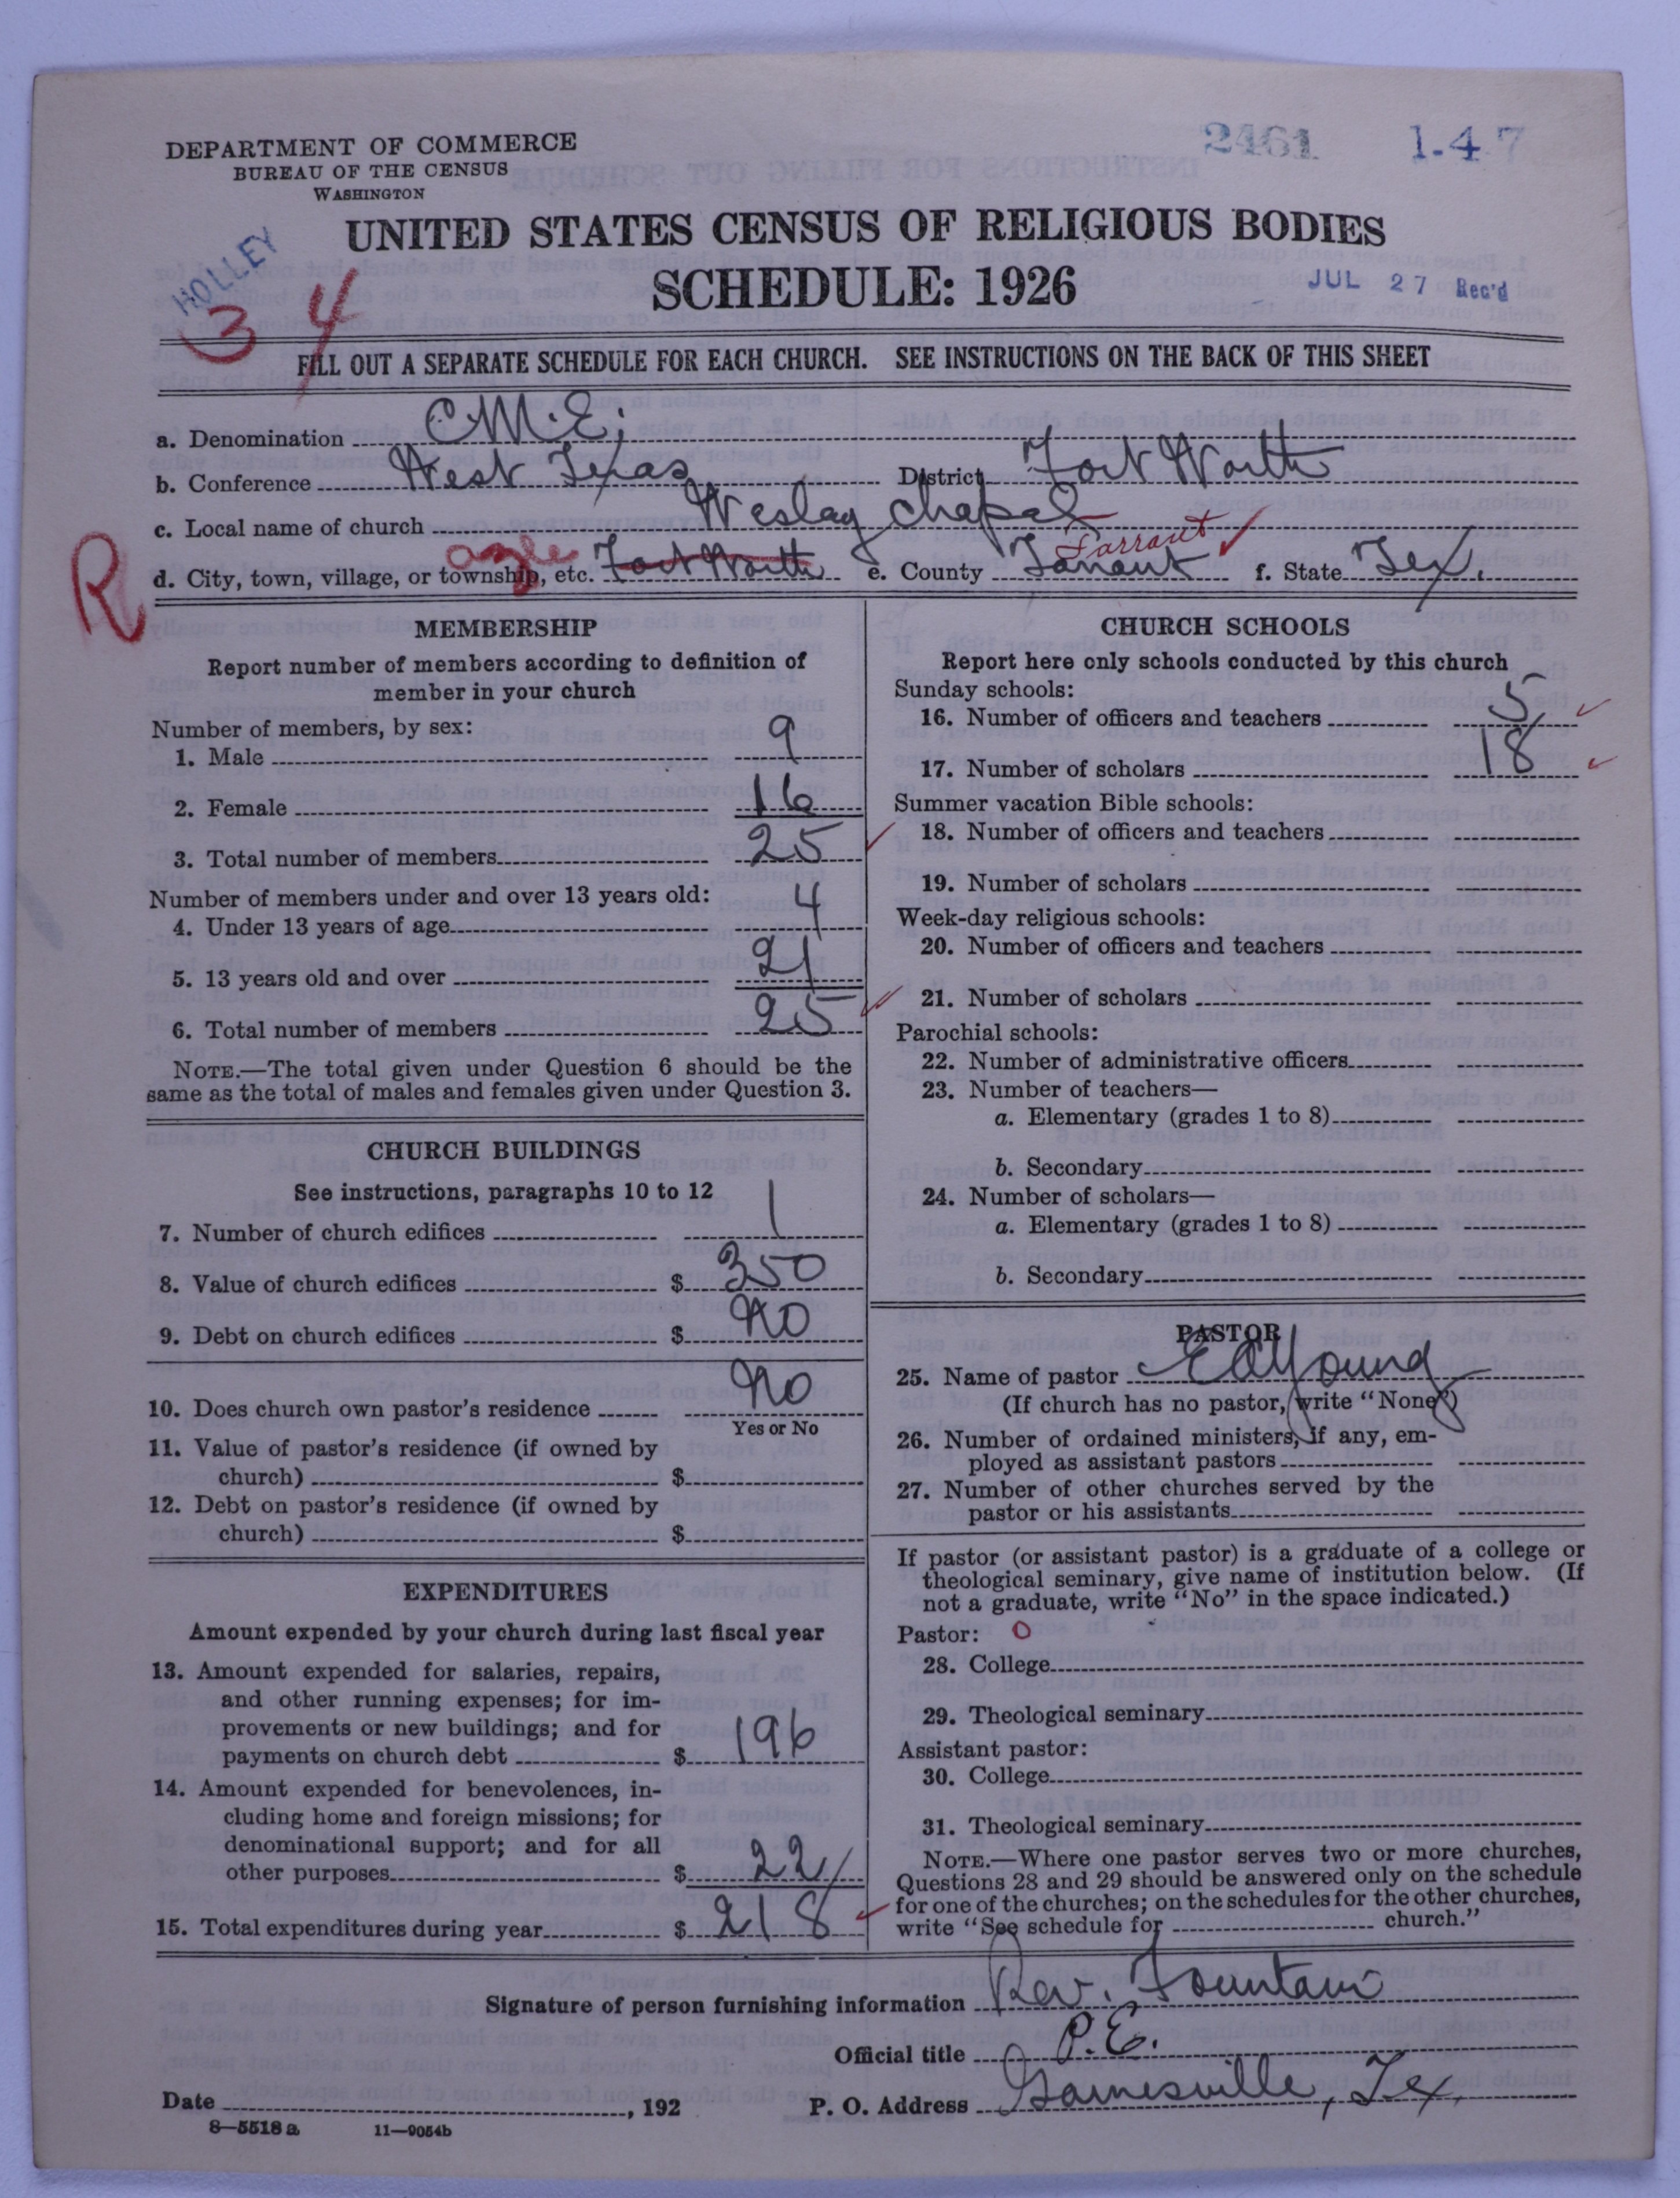 DEPARTMENT OF COMMERCE
BUREAU OF THE CENSUS
WASHINGTON
2461 1-47
UNITED STATES CENSUS OF RELIGIOUS BODIES
SCHEDULE: 1926
HOLLEY
34
JUL 27 Rec'd
FILL OUT A SEPARATE SCHEDULE FOR EACH CHURCH. SEE INSTRUCTIONS ON THE BACK OF THIS SHEET
a. Denomination C.M.E.
b. Conference West Texas District Fort Worth
c. Local name of church Wesley Chapel
R
d. City, town, village, or township, etc. Azle Fort Worth e. County Tarrant Tarrant f. State Tex.
MEMBERSHIP
Report number of members according to definition of
member in your church
Number of members, by sex:
1. Male 9
2. Female 16
3. Total number of members 25
Number of members under and over 13 years old:
4. Under 13 years of age 4
5. 13 years old and over 21
6. Total number of members 25
NOTE.—The total given under Question 6 should be the
same as the total of males and females given under Question 3.
CHURCH BUILDINGS
See instructions, paragraphs 10 to 12
7. Number of church edifices 1
8. Value of church edifices $ 350
9. Debt on church edifices $ No
10. Does church own pastor's residence No
Yes or No
11. Value of pastor's residence (if owned by
church) $
12. Debt on pastor's residence (if owned by
church) $
EXPENDITURES
Amount expended by your church during last fiscal year
13. Amount expended for salaries, repairs,
and other running expenses; for im-
provements or new buildings; and for
payments on church debt $ 196
14. Amount expended for benevolences, in-
cluding home and foreign missions; for
denominational support; and for all
other purposes $ 22
15. Total expenditures during year $ 218
CHURCH SCHOOLS
Report here only schools conducted by this church
Sunday schools:
16. Number of officers and teachers 5
17. Number of scholars 18
Summer vacation Bible schools:
18. Number of officers and teachers
19. Number of scholars
Week-day religious schools:
20. Number of officers and teachers
21. Number of scholars
Parochial schools:
22. Number of administrative officers
23. Number of teachers—
a. Elementary (grades 1 to 8)
b. Secondary
24. Number of scholars—
a. Elementary (grades 1 to 8)
b. Secondary
PASTOR
25. Name of pastor E A Young
(If church has no pastor, write "None")
26. Number of ordained ministers, if any, em-
ployed as assistant pastors
27. Number of other churches served by the
pastor or his assistants
If pastor (or assistant pastor) is a graduate of a college or
theological seminary, give name of institution below. (If
not a graduate, write "No" in the space indicated.)
Pastor: 0
28. College
29. Theological seminary
Assistant pastor:
30. College
31. Theological seminary
NOTE.—Where one pastor serves two or more churches,
Questions 28 and 29 should be answered only on the schedule
for one of the churches; on the schedules for the other churches,
write "See schedule for church."
Signature of person furnishing information Rev. Fountain
Official title P.E.
Date , 192 P. O. Address Gainesville, Tex.
8—5518 a 11—9054b